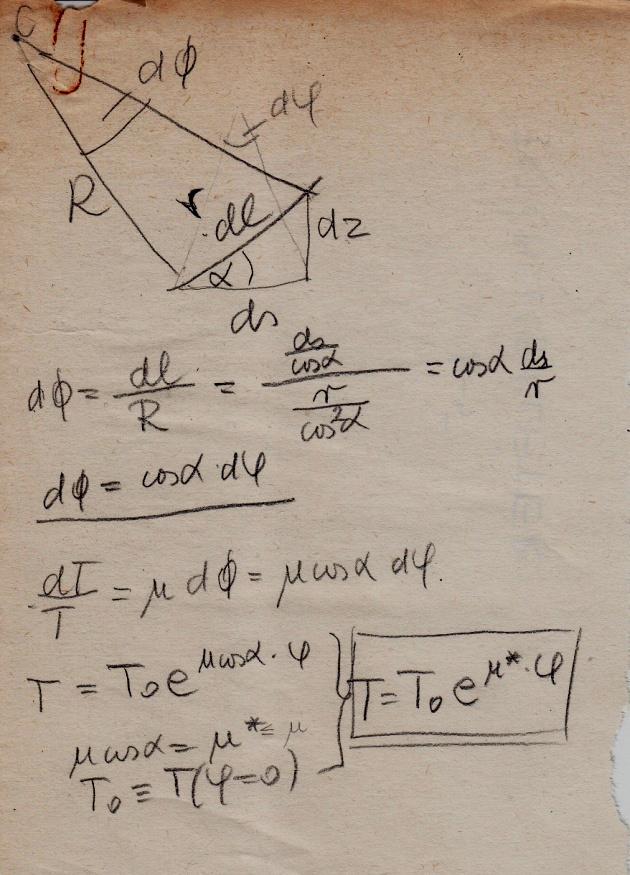 C
dϕ
dφ
R
r
dl
dz
α
ds
dϕ = dl/R = (ds/cosα)/(r/cos²α) = cosα ds/r
dϕ = cosα·dφ
dT/T = μ dϕ = μcosα dφ.
T = T₀e^{μcosα·φ}
T = T₀e^{μ*·φ}
μcosα = μ* ≤ μ
T₀ ≡ T(φ=0)